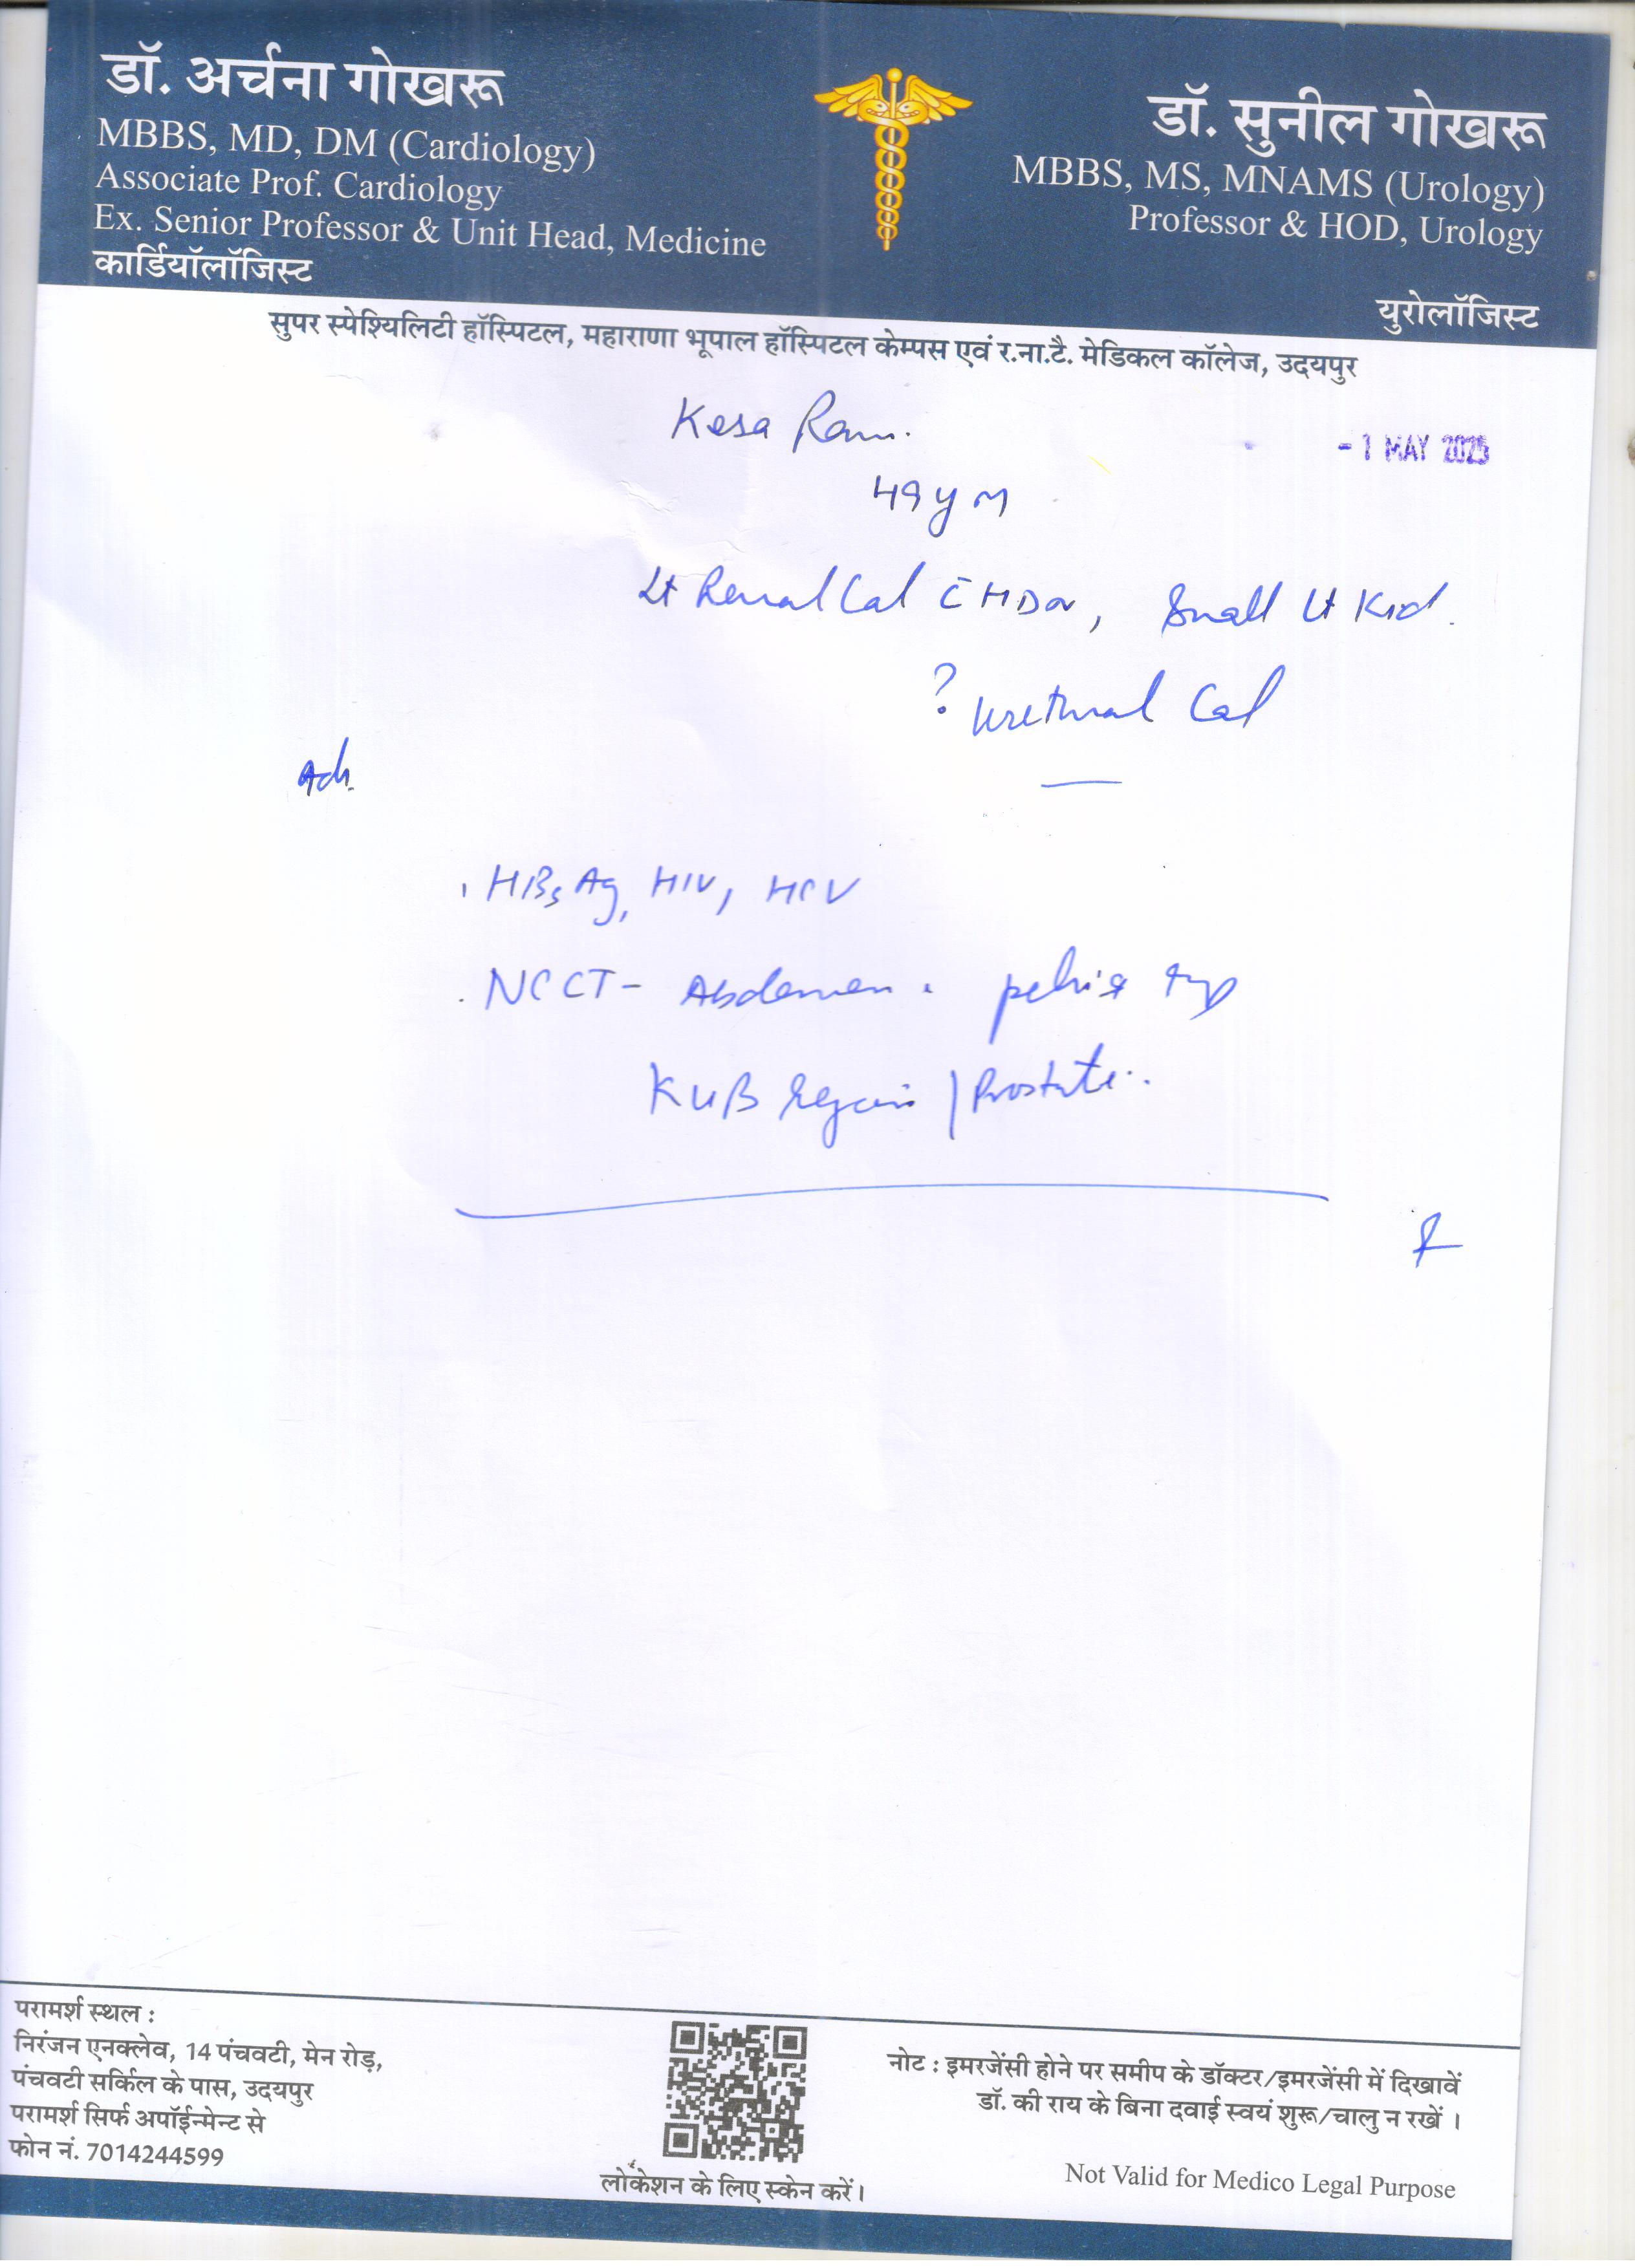 डॉ. अर्चना गोखरू
MBBS, MD, DM (Cardiology)
Associate Prof. Cardiology
Ex. Senior Professor & Unit Head, Medicine
कार्डियॉलॉजिस्ट
डॉ. सुनील गोखरू
MBBS, MS, MNAMS (Urology)
Professor & HOD, Urology
युरोलॉजिस्ट
सुपर स्पेश्यिलिटी हॉस्पिटल, महाराणा भूपाल हॉस्पिटल केम्पस एवं र.ना.टै. मेडिकल कॉलेज, उदयपुर
Kesa Ram.
- 1 MAY 2025
49 y M
Lt Renal Cal c̄ HDN, Small Lt Kid.
? Urethral Cal
Adv.
HBsAg, HIV, HCV
NCCT - Abdomen . pelvis
KUB region / Prostate..
परामर्श स्थल :
निरंजन एनक्लेव, 14 पंचवटी, मेन रोड़,
पंचवटी सर्किल के पास, उदयपुर
परामर्श सिर्फ अपॉईन्मेन्ट से
फोन नं. 7014244599
लोकेशन के लिए स्केन करें।
नोट : इमरजेंसी होने पर समीप के डॉक्टर/इमरजेंसी में दिखावें
डॉ. की राय के बिना दवाई स्वयं शुरू/चालु न रखें ।
Not Valid for Medico Legal Purpose